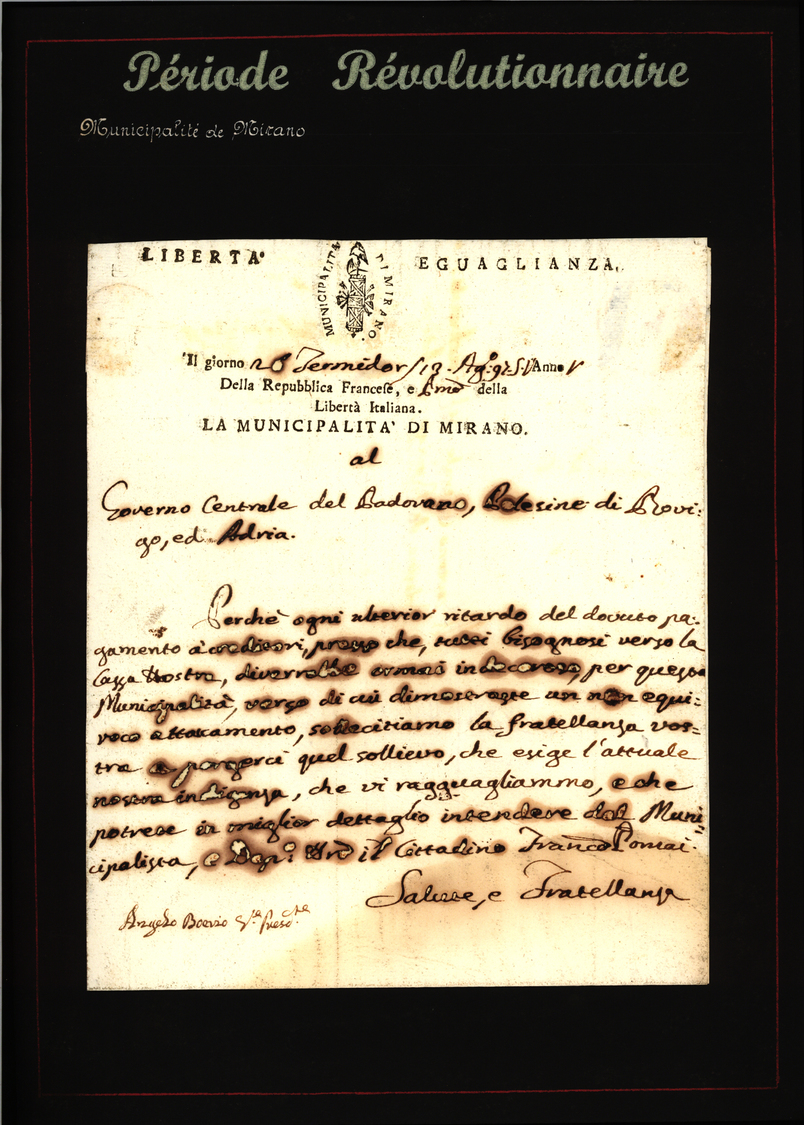 Période Révolutionnaire
Municipalité de Mirano
LIBERTA'
MUNICIPALITA DI MIRANO
EGUAGLIANZA.
Il giorno 26 Termidor Anno V
Della Repubblica Francese, e Pmo della
Libertà Italiana.
LA MUNICIPALITA' DI MIRANO.
al
Governo Centrale del Padovano, Polesine di Rovi:
go, ed Adria.
Perchè ogni ulterior ritardo del dovuto pa:
gamento a' creditori, presso che, tutti bisognosi verso la
Cassa Nostra, diverrebbe ormai indecoroso, per questa
Municipalità, verso di cui dimostraste un non equi:
voco attacamento, sollecitiamo la fratellanza vos:
tra a porgerci quel sollievo, che esige l'attuale
nostra indigenza, che vi ragguagliammo, e che
potrete in miglior dettaglio intendere dal Muni:
cipalista, e il Cittadino Franco
Salute, e Fratellanza
Angelo